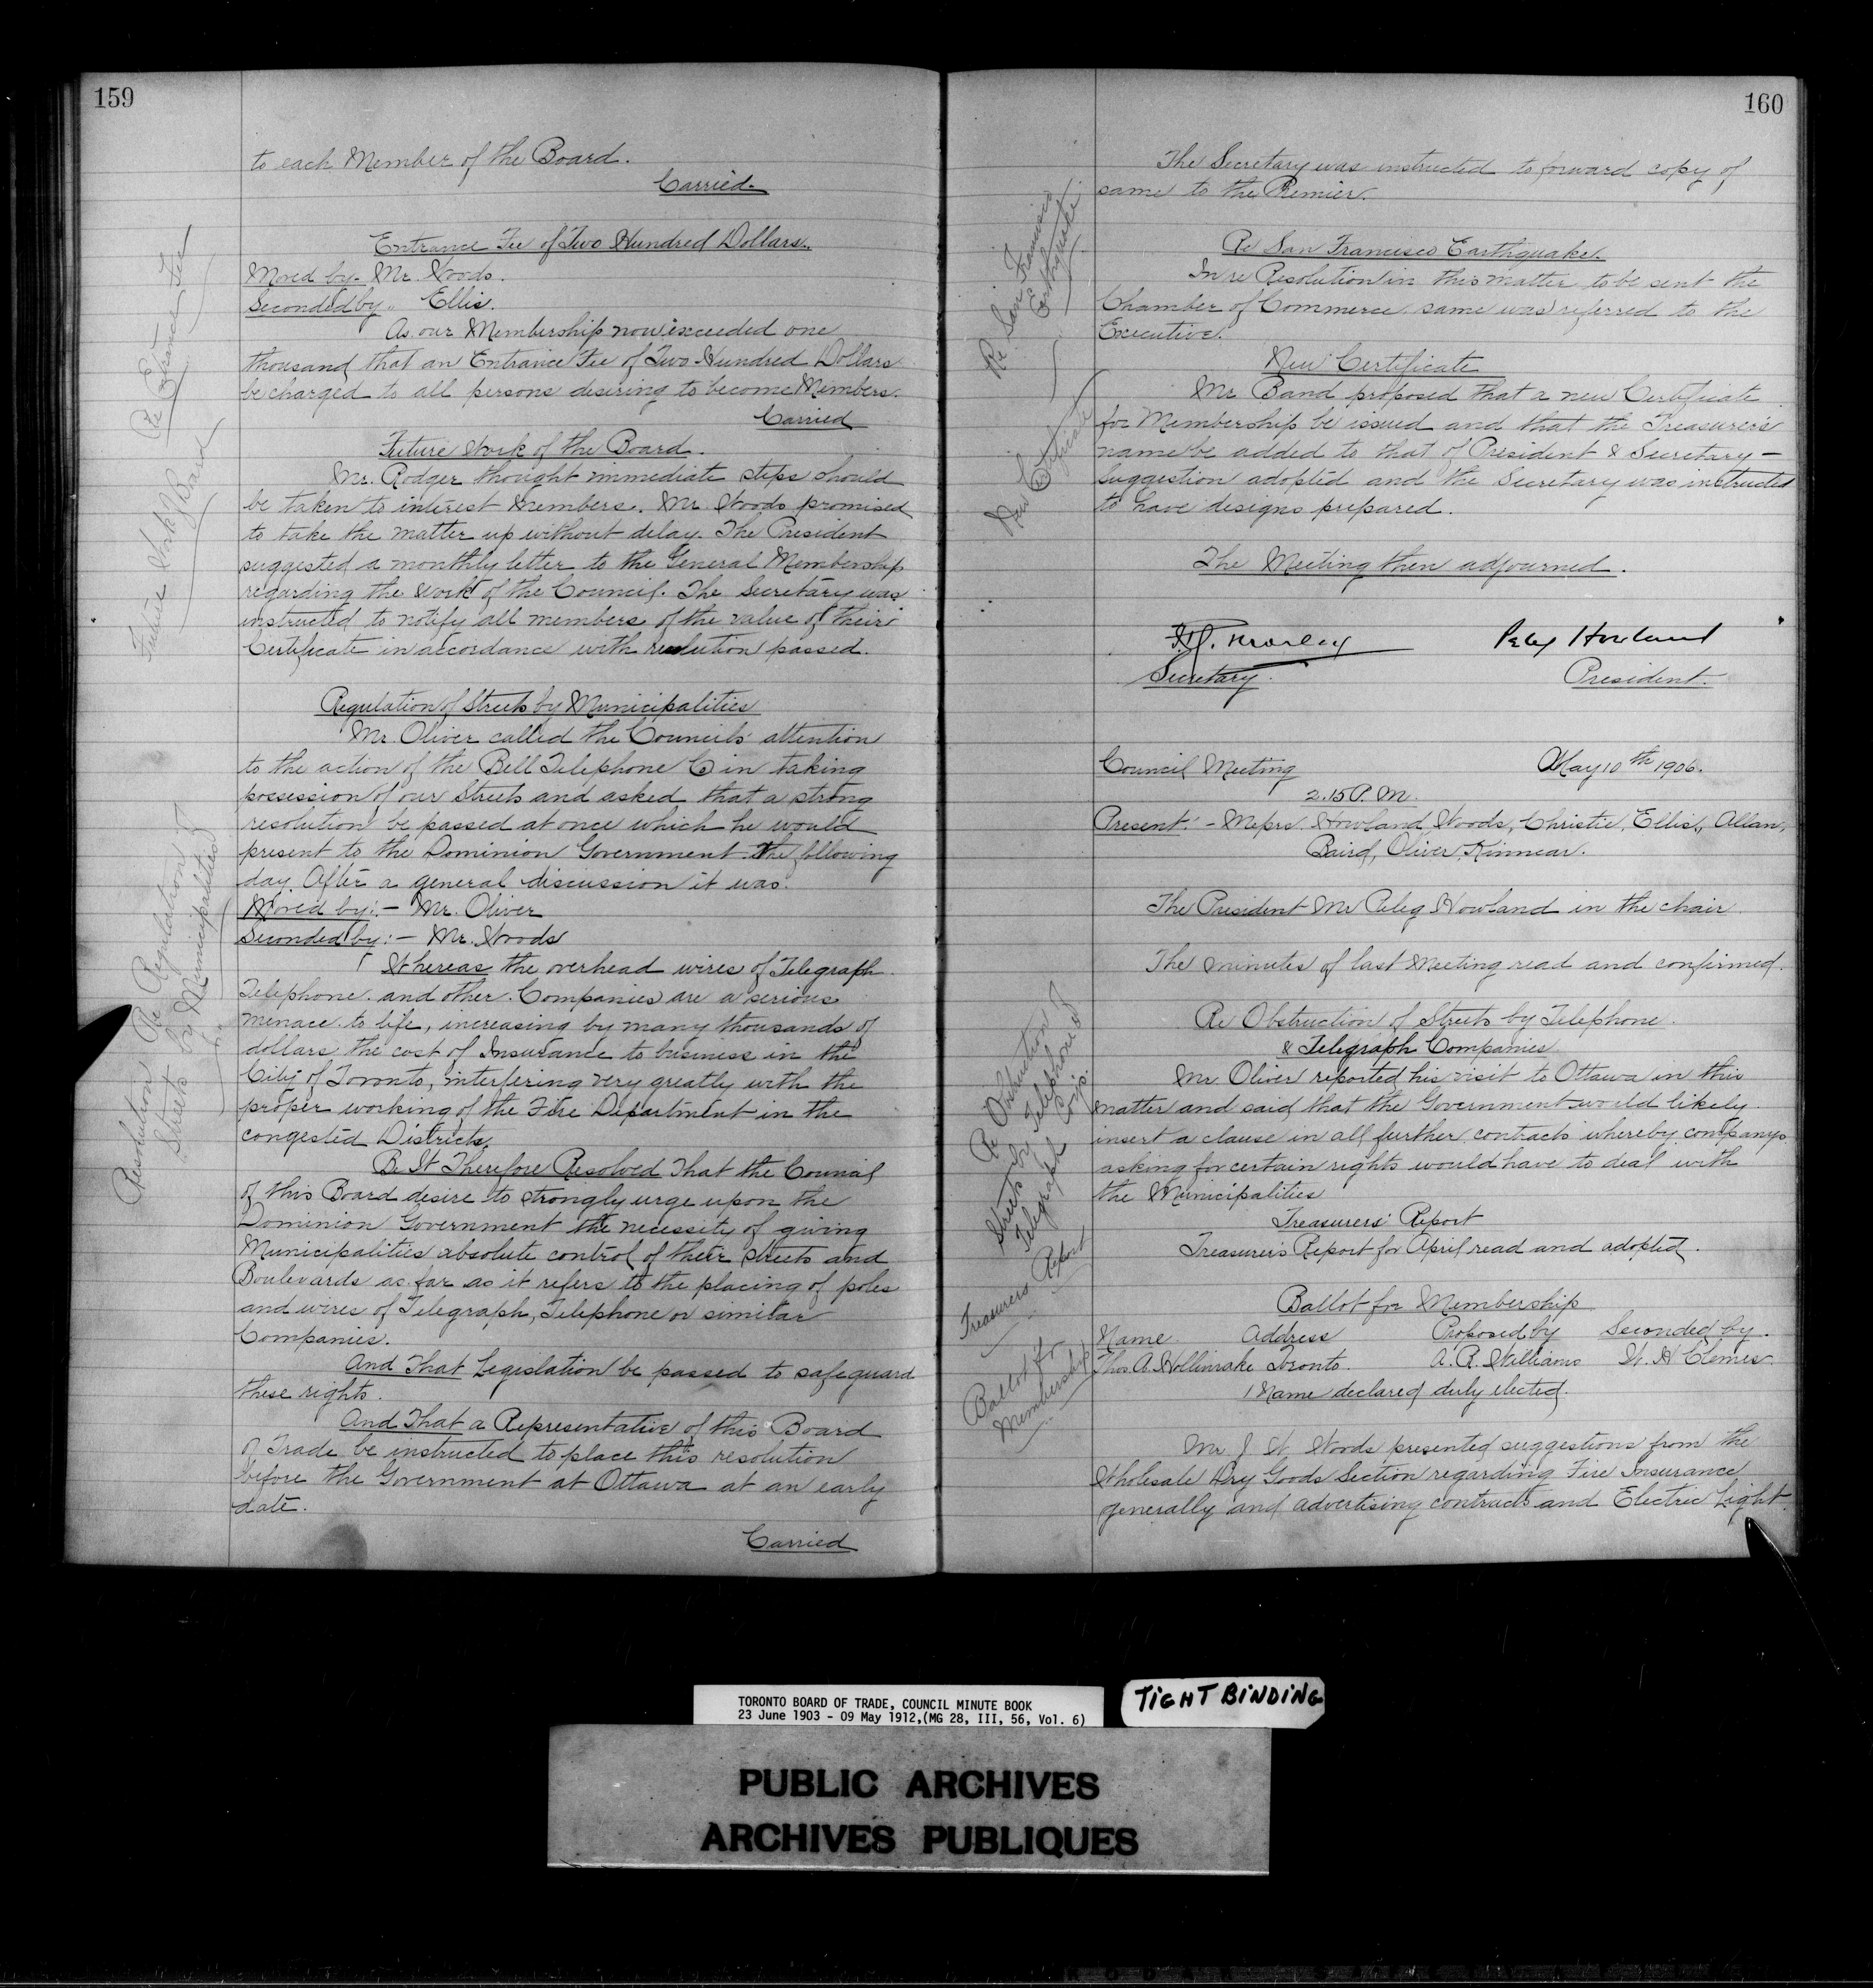 159
to each Member of the Board.
Carried.
Entrance Fee of Two Hundred Dollars.
Moved by - Mr. Woods.
Seconded by " Ellis.
As our Membership now exceeded one
thousand that an Entrance Fee of Two Hundred Dollars
be charged to all persons desiring to become Members.
Carried
Re Entrance Fee
Future Work of the Board.
Mr. Rodger thought immediate steps should
be taken to interest Members. Mr. Woods promised
to take the matter up without delay. The President
suggested a monthly letter to the General Membership
regarding the work of the Council. The Secretary was
instructed to notify all members of the value of their
Certificate in accordance with resolution passed.
Future Work of Board
Regulation of Streets by Municipalities
Mr. Oliver called the Councils' attention
to the action of the Bell Telephone Co in taking
possession of our Streets and asked that a strong
resolution be passed at once which he would
present to the Dominion Government the following
day. After a general discussion it was.
Moved by:- Mr. Oliver
Seconded by:- Mr. Woods
Whereas the overhead wires of Telegraph
Telephone. and other Companies are a serious
menace to life, increasing by many thousands of
dollars the cost of Insurance to business in the
City of Toronto, interfering very greatly with the
proper working of the Fire Department in the
congested Districts.
Be It Therefore Resolved That the Council
of this Board desire to strongly urge upon the
Dominion Government the necessity of giving
Municipalities absolute control of their streets and
Boulevards as far as it refers to the placing of poles
and wires of Telegraph, Telephone or similar
Companies.
And That Legislation be passed to safeguard
these rights.
And That a Representative of this Board
of Trade be instructed to place this resolution
before the Government at Ottawa at an early
date.
Carried
Resolution Re Regulation of
Streets by Municipalities
160
The Secretary was instructed to forward copy of
same to the Premier.
Re San Francisco Earthquake.
In re Resolution in this matter to be sent the
Chamber of Commerce same was referred to the
Executive.
Re San Francisco
Earthquake
New Certificate
Mr Band proposed that a new Certificate
for Membership be issued and that the Treasurer's
name be added to that of President & Secretary -
Suggestion adopted and the Secretary was instructed
to have designs prepared.
New Certificate
The Meeting then adjourned.
F.G. Morley
Peleg Howland
Secretary.
President.
Council Meeting
May 10th 1906.
2.15 P.M.
Present:- Messrs. Howland, Woods, Christie, Ellis, Allan,
Baird, Oliver, Kinnear.
The President Mr Peleg Howland in the chair.
The minutes of last Meeting read and confirmed.
Re Obstruction of Streets by Telephone
& Telegraph Companies.
Mr. Oliver reported his visit to Ottawa in this
matter and said that the Government would likely
insert a clause in all further contracts whereby companys
asking for certain rights would have to deal with
the Municipalities
Re Obstruction of
Streets by Telephone &
Telegraph Co's.
Treasurers' Report
Treasurer's Report for April read and adopted.
Treasurers Report
Ballot for Membership
Name. Address Proposed by Seconded by.
Thos. A. Hollinrake Toronto. A. R. Williams W. H Clemes.
1 Name declared duly elected.
Ballot for
Membership
Mr. J. W. Woods presented suggestions from the
Wholesale Dry Goods Section regarding Fire Insurance
generally and advertising contracts and Electric Light.
TORONTO BOARD OF TRADE, COUNCIL MINUTE BOOK
23 June 1903 - 09 May 1912,(MG 28, III, 56, Vol. 6)
TIGHT BINDING
PUBLIC ARCHIVES
ARCHIVES PUBLIQUES